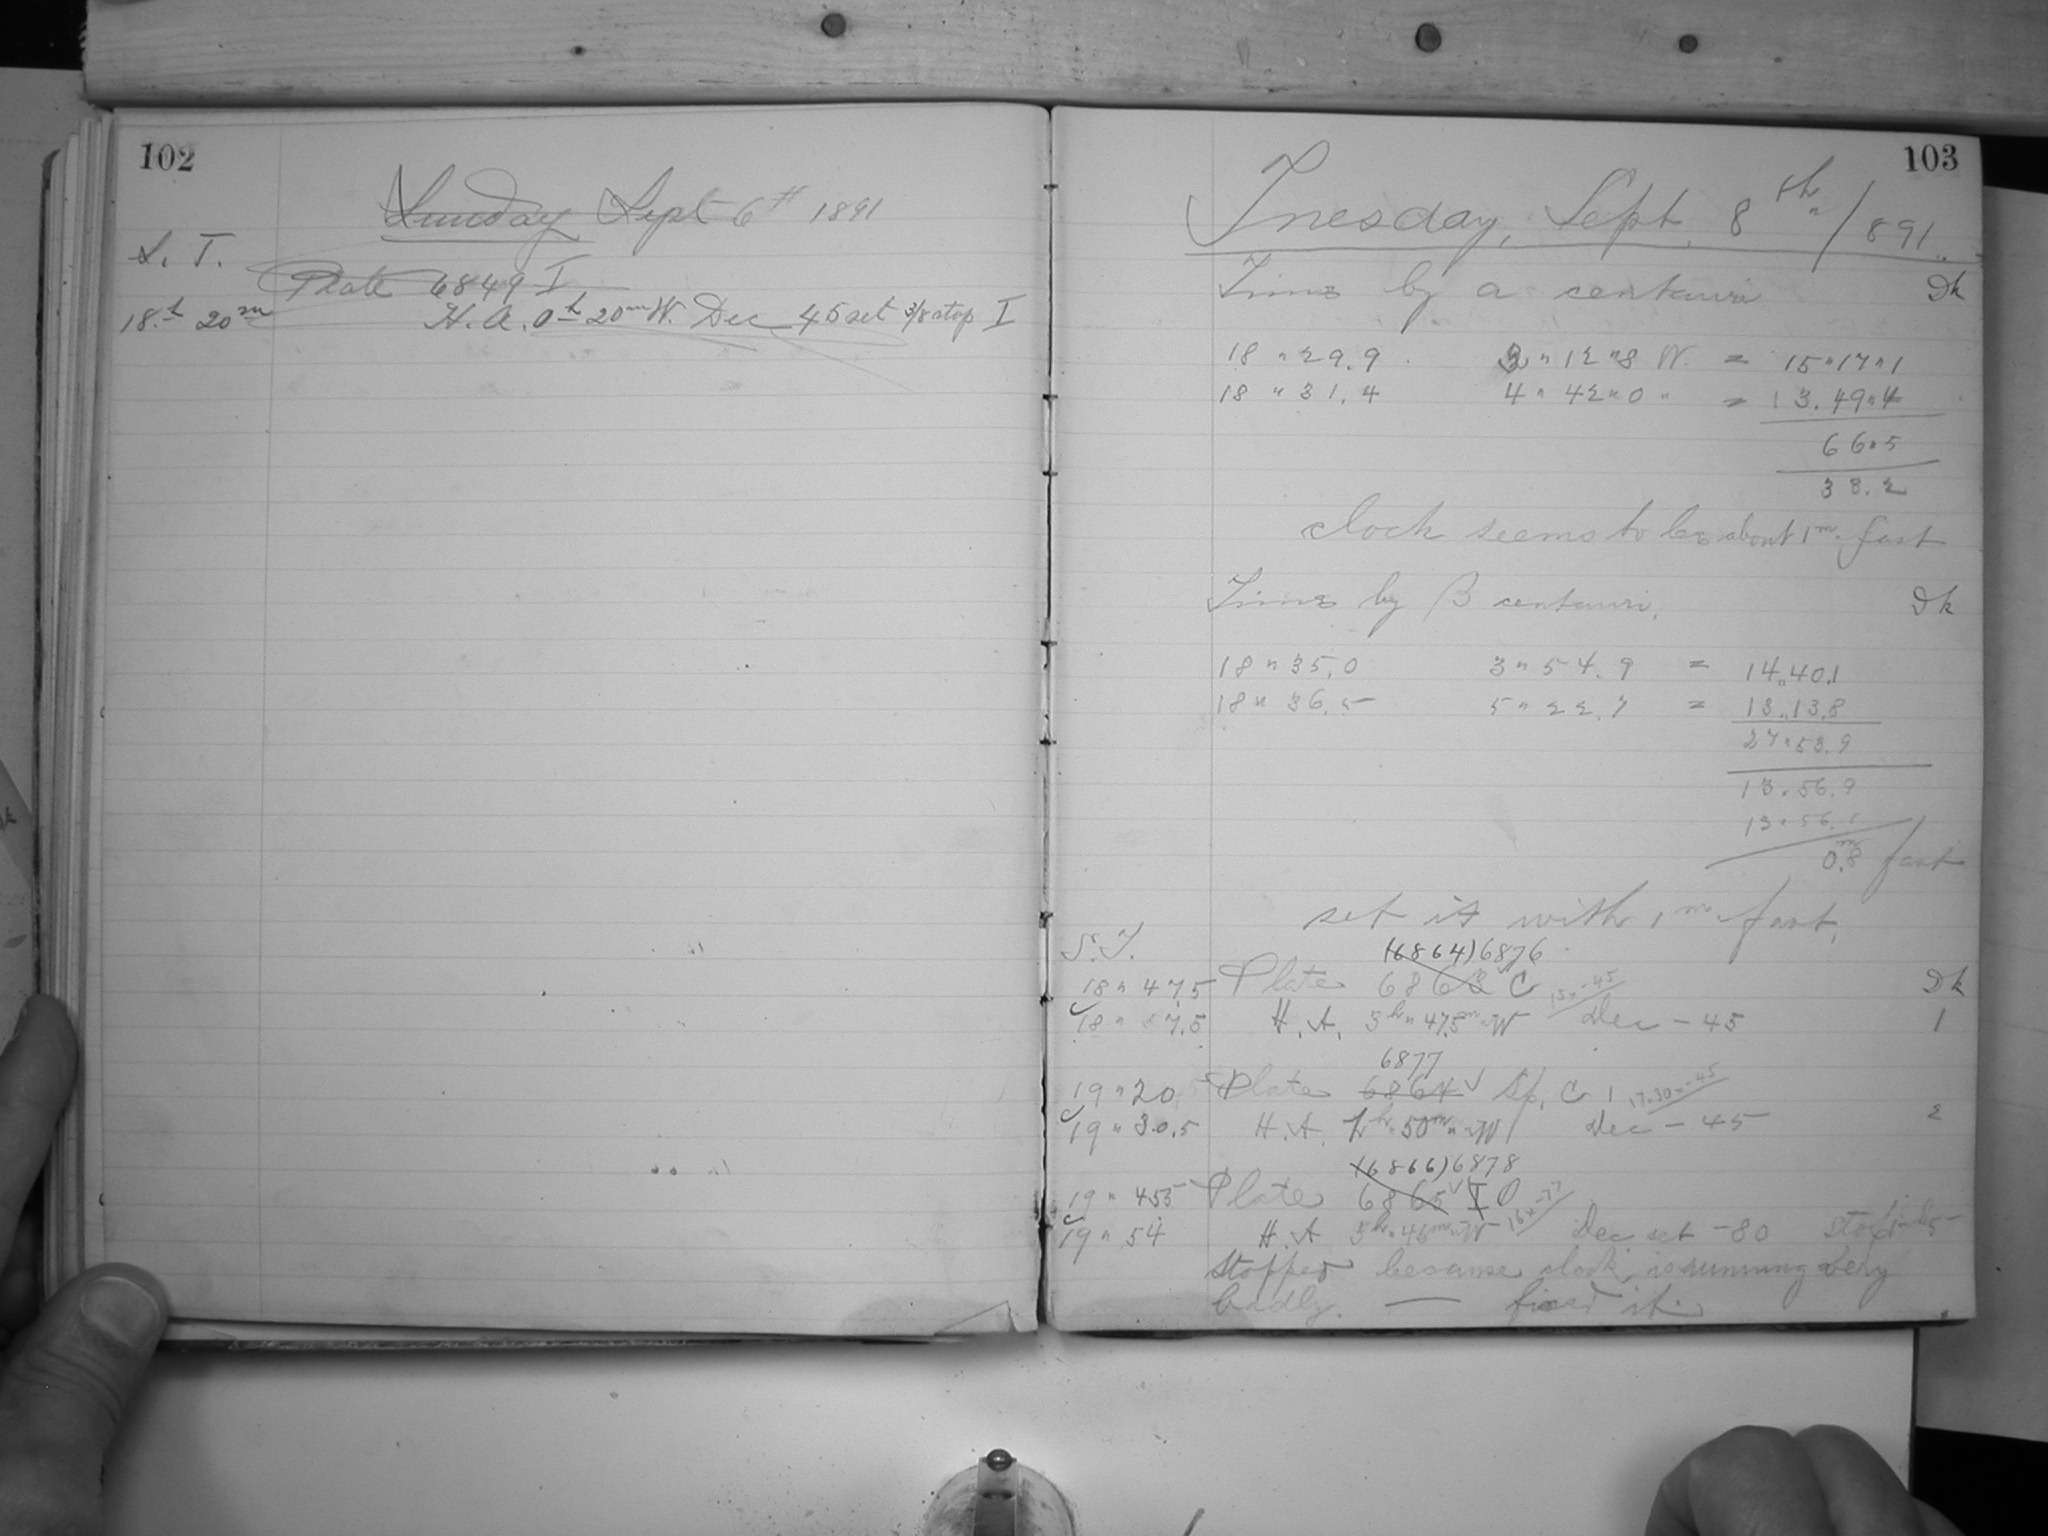 102
Sunday Sept 6th 1891
S. T.
Plate 6849 I
18.h 20m H. A. 0h 20m W. Dec 45 set 3/8 stop I
103
Tuesday, Sept. 8th 1891.
Time by a centauri Dk
18 " 29.9 3 " 12 " 8 W. = 15 " 17 " 1
18 " 31.4 4 " 42 " 0 " = 13. 49 " 4
66 " 5
38.2
clock seems to be about 1m fast
Time by B centauri, Dk
18 " 35.0 3 " 54.9 = 14 " 40.1
18 " 36.5 5 " 22.7 = 13 " 13.8
27 " 53.9
13 " 56.9
13 " 56.1
0.m8 fast
set it with 1m fast,
S.T.
(6864) 6876
18 " 47.5 Plate 6863 C 15 x -45 Dk
18 " 57.5 H. A. 3h " 47.5m " W Dec - 45 1
6877
19 " 20.5 Plate 6864 Sp. C 1 17.30 x -45
19 " 30.5 H. A. 2h " 50m " W Dec - 45 2
(6866) 6878
19 " 45.5 Plate 6865 I O 16 x -77
19 " 54 H. A 3h " 46m " W Dec set -80
Stopped because clock is running very
badly. — fixed it.